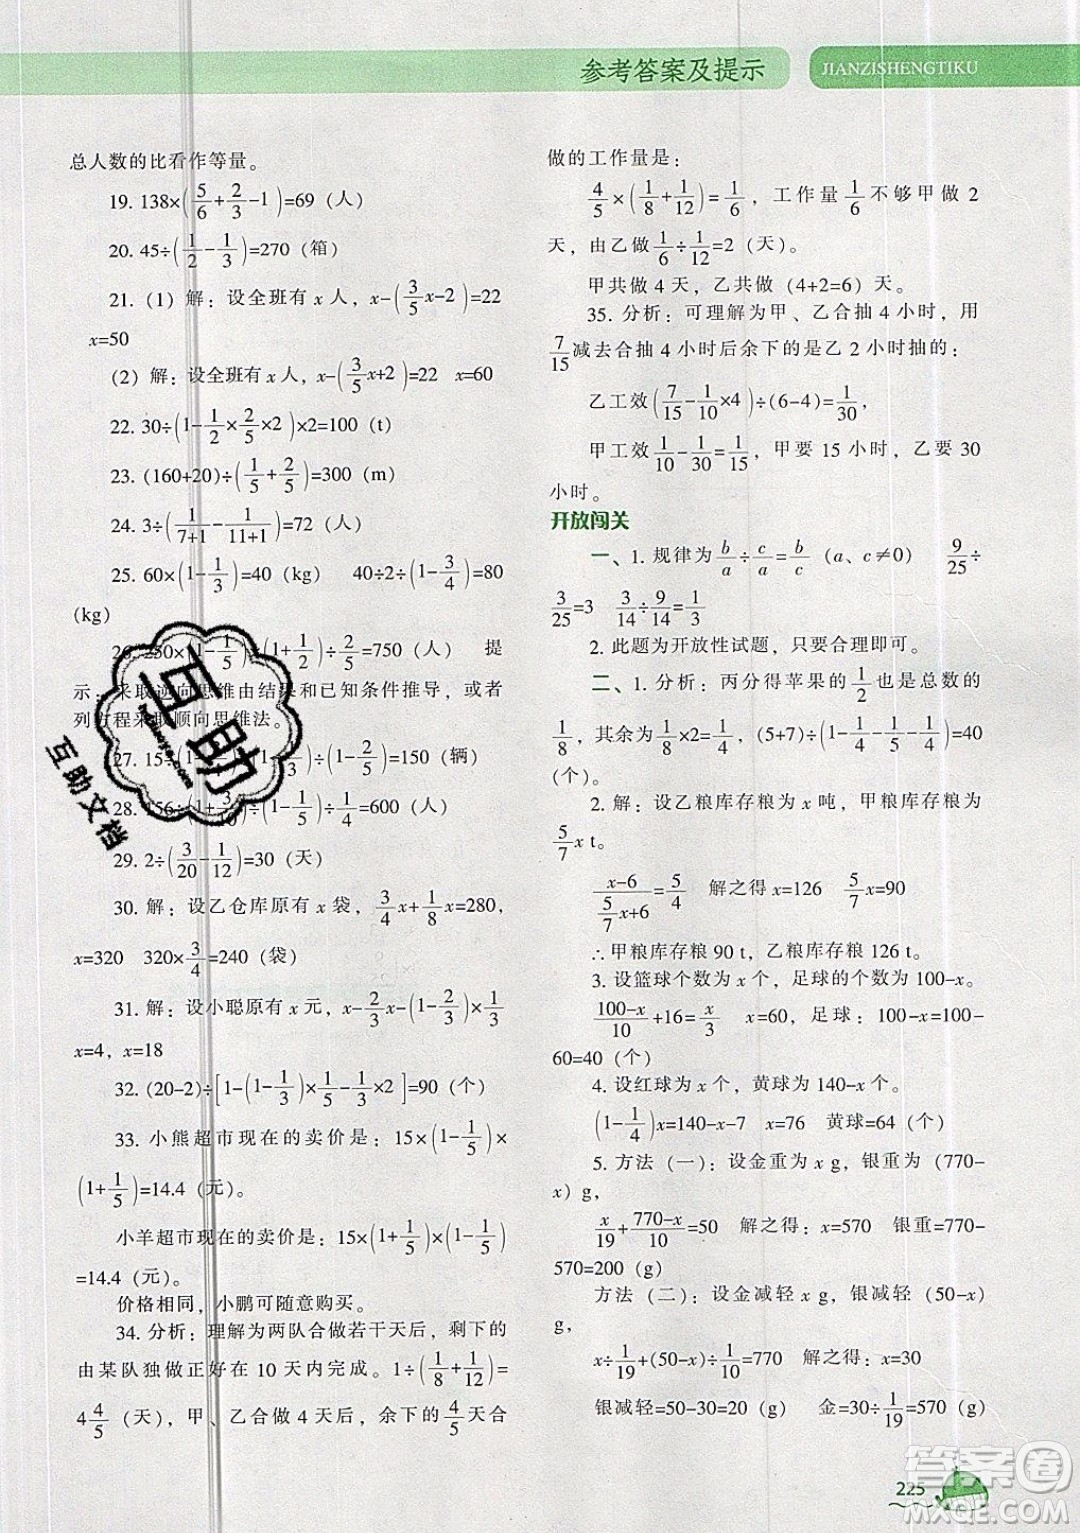 参考答案及提示
JIANZISHENGTIKU
总人数的比看作等量。
19. 138×(5/6+2/3-1)=69（人）
20. 45÷(1/2-1/3)=270（箱）
21.（1）解：设全班有 x 人，x-(3/5x-2)=22
x=50
（2）解：设全班有 x 人，x-(3/5x+2)=22 x=60
22. 30÷(1-1/2×2/5×2)×2=100（t）
23.（160+20)÷(1/5+2/5)=300（m）
24. 3÷(1/7+1-1/11+1)=72（人）
25. 60×(1-1/3)=40（kg） 40÷2÷(1-3/4)=80
（kg）
26. 250×(1-1/5)÷(1+1/2)÷2/5=750（人） 提
示：采取逆向思维由结果和已知条件推导，或者
列方程采取顺向思维法。
27. 15÷(1-1/5)÷(1-2/5)=150（辆）
28. 456÷(1+3/10)÷(1+1/4)=600（人）
29. 2÷(3/20-1/12)=30（天）
30. 解：设乙仓库原有 x 袋，3/4x+1/8x=280，
x=320 320×3/4=240（袋）
31. 解：设小聪原有 x 元，x-2/3x-(1-2/3)×1/3
x=4，x=18
32.（20-2)÷[1-(1-1/3)×1/5-1/3×2]=90（个）
33. 小熊超市现在的卖价是：15×(1-1/5)×
(1+1/5)=14.4（元）。
小羊超市现在的卖价是：15×(1+1/5)×(1-1/5)
=14.4（元）。
价格相同，小鹏可随意购买。
34. 分析：理解为两队合做若干天后，剩下的
由某队独做正好在 10 天内完成。1÷(1/8+1/12)=
4 4/5（天），甲、乙合做 4 天后，余下的 4/5 天合
做的工作量是：
4/5×(1/8+1/12)=1/6，工作量 1/6 不够甲做 2
天，由乙做 1/6÷1/12=2（天）。
甲共做 4 天，乙共做（4+2=6）天。
35. 分析：可理解为甲、乙合抽 4 小时，用
7/15 减去合抽 4 小时后余下的是乙 2 小时抽的：
乙工效(7/15-1/10×4)÷(6-4)=1/30，
甲工效 1/10-1/30=1/15，甲要 15 小时，乙要 30
小时。
开放闯关
一、1. 规律为 b/a÷c/a=b/c（a、c≠0） 9/25÷
3/25=3 3/14÷9/14=1/3
2. 此题为开放性试题，只要合理即可。
二、1. 分析：丙分得苹果的 1/2 也是总数的
1/8，其余为 1/8×2=1/4，(5+7)÷(1-1/4-1/5-1/4)=40
（个）。
2. 解：设乙粮库存粮为 x 吨，甲粮库存粮为
5/7x t。
x-6/5/7x+6=5/4 解之得 x=126 5/7x=90
∴甲粮库存粮 90 t，乙粮库存粮 126 t。
3. 设篮球个数为 x 个，足球的个数为 100-x。
100-x/10+16=x/3 x=60，足球：100-x=100-
60=40（个）
4. 设红球为 x 个，黄球为 140-x 个。
(1-1/4)x=140-x-7 x=76 黄球=64（个）
5. 方法（一）：设金重为 x g，银重为（770-
x）g，
x/19+770-x/10=50 解之得：x=570 银重=770-
570=200（g）
方法（二）：设金减轻 x g，银减轻（50-x）
g，
x÷1/19+(50-x)÷1/10=770 解之得：x=30
银减轻=50-30=20（g） 金=30÷1/19=570（g）
225
互助
互助文档
答案圈
MXQE.COM